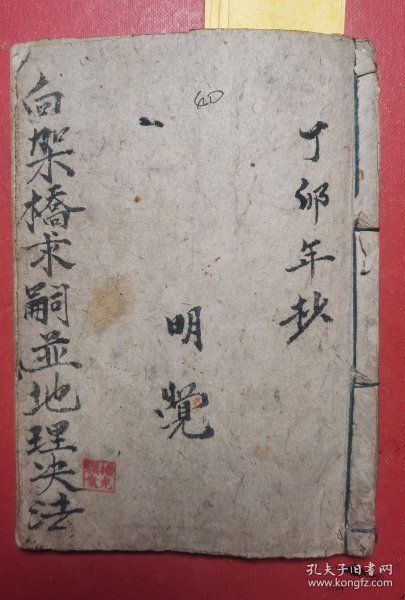 丁卯年抄
明觉
向架橋求嗣並地理决法
40
孔夫子旧书网
www.kongfz.com